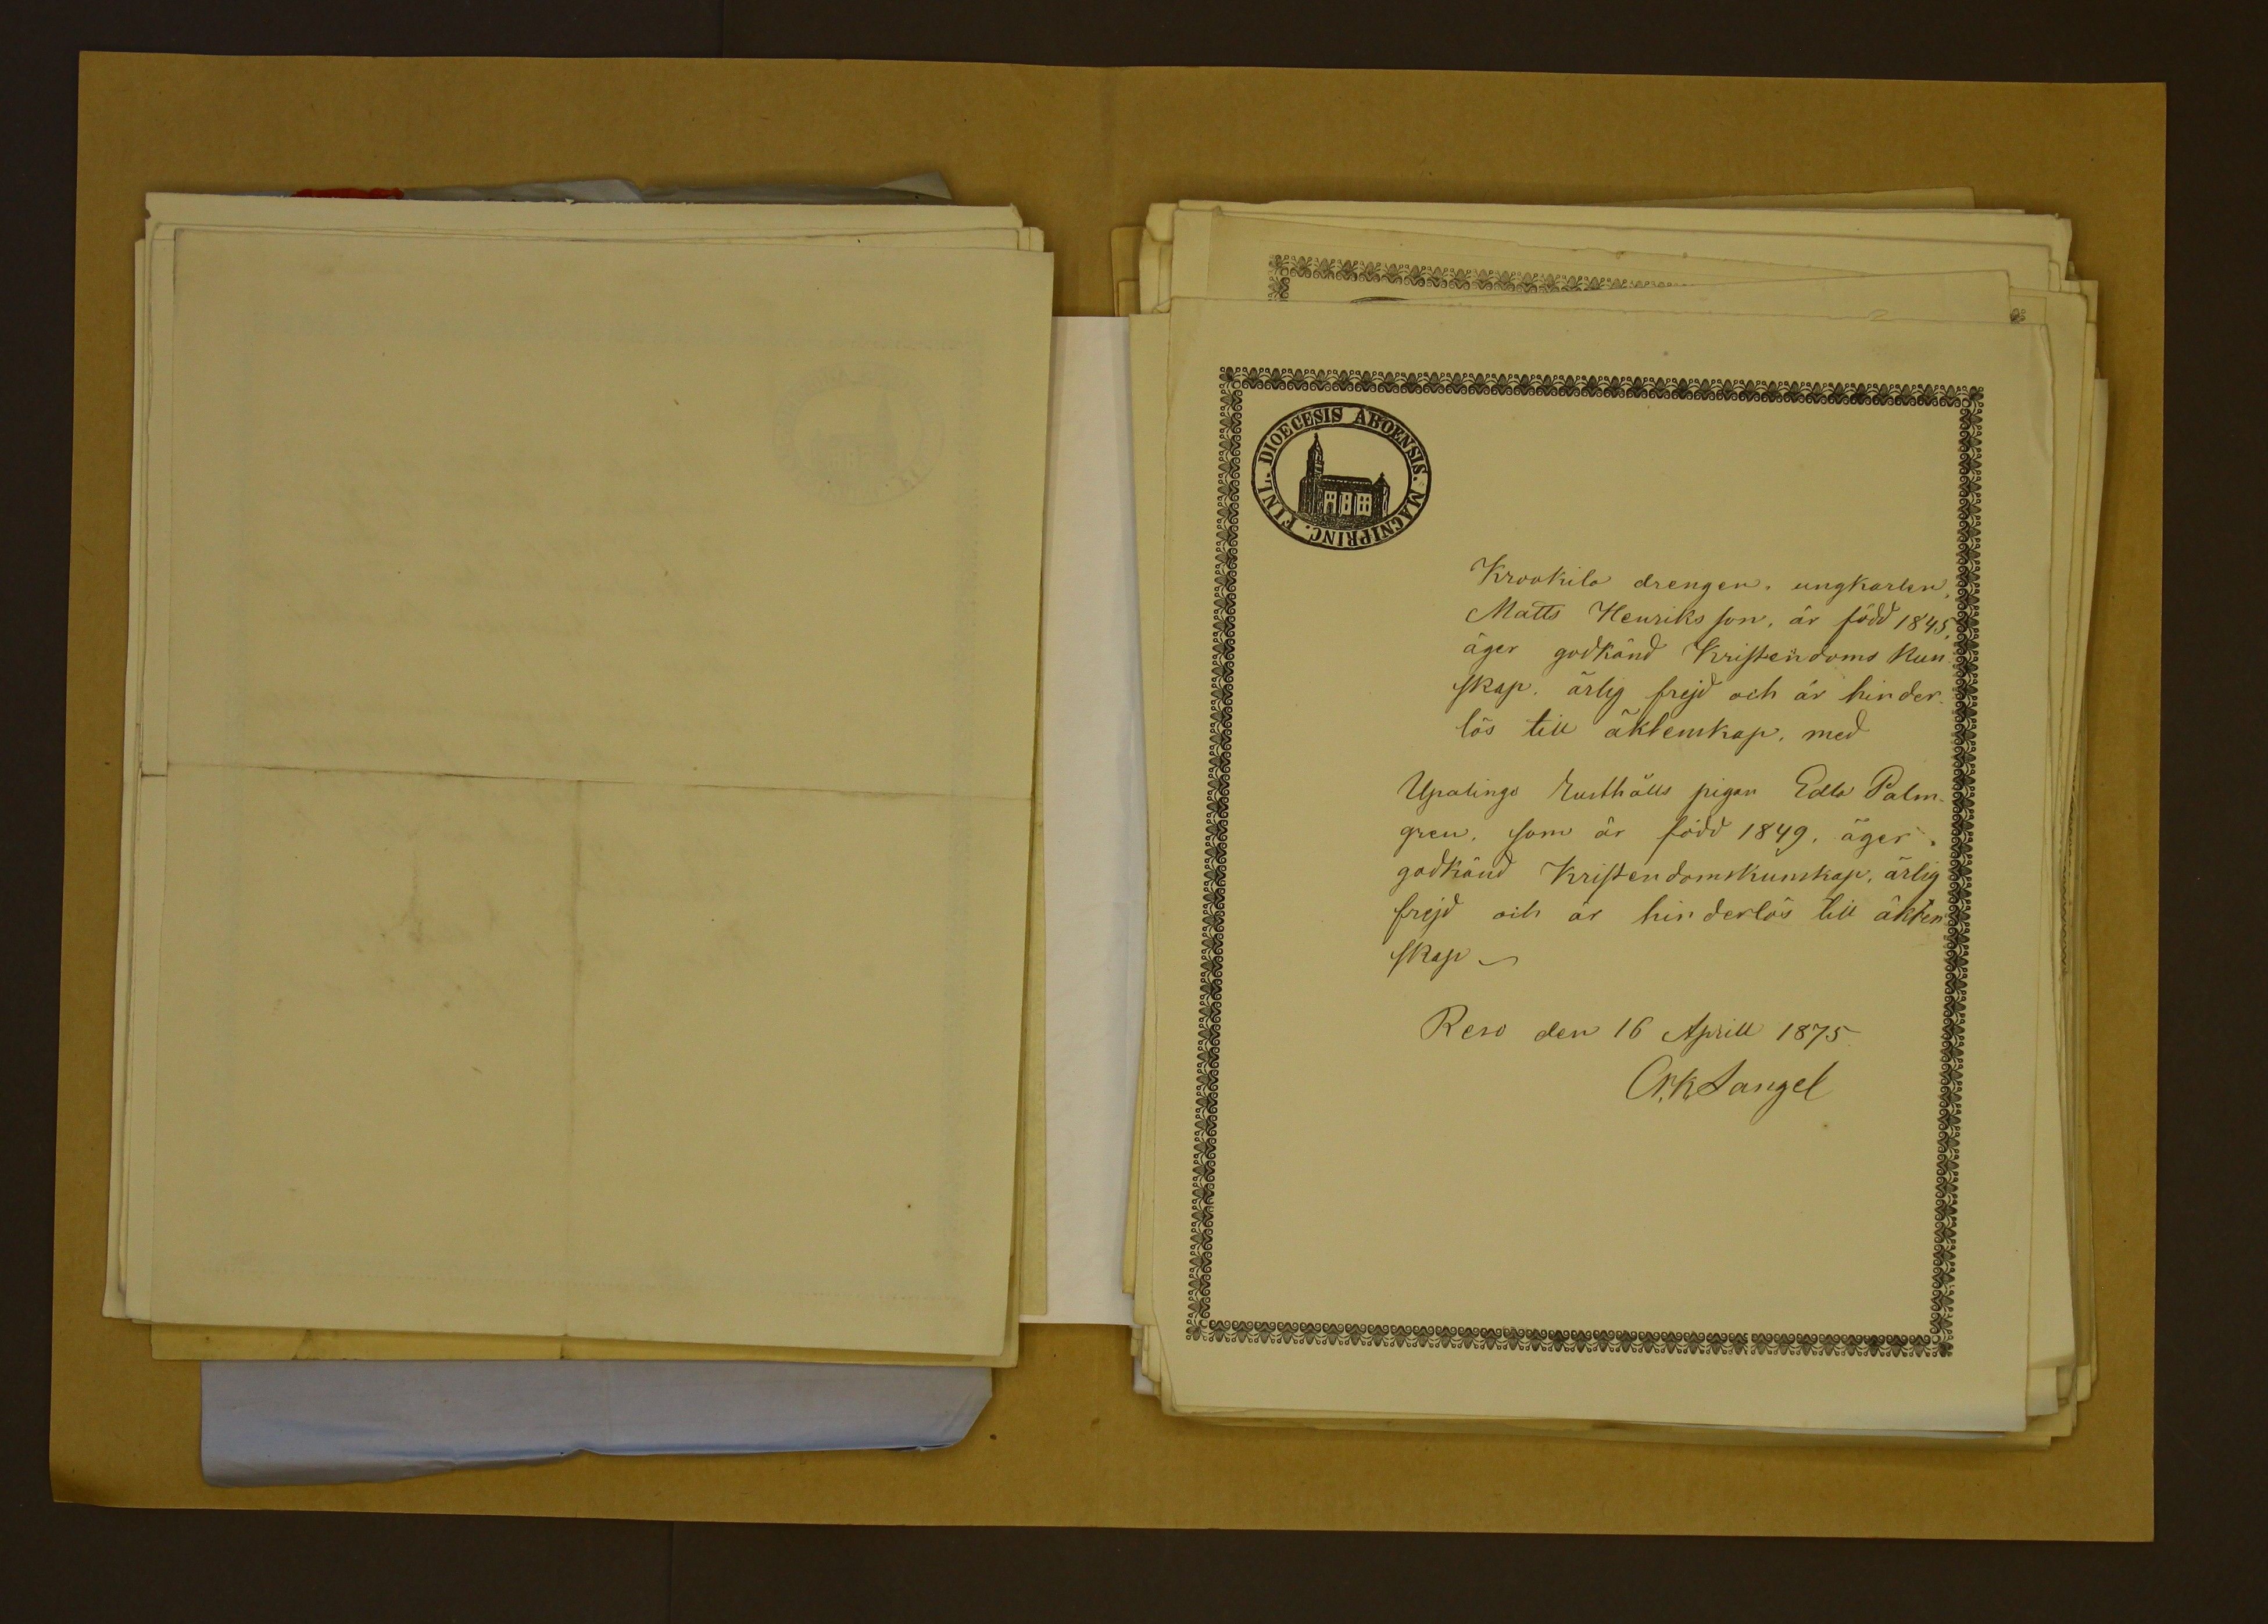 DIOECESIS ABOENSIS. MAGNIPRINC. FINL.
Krookila drengen, ungkarlen,
Matts Henriksson, är född 1845,
äger godkänd Kristendoms kun-
skap, ärlig frejd och är hinder-
lös till äktenskap, med
Upalingo Rusthålls pigan Edla Palm-
gren, som är född 1849, äger
godkänd Kristendomskunskap, ärlig
frejd och är hinderlös till äkten-
skap
Reso den 16 Aprill 1875
Langel